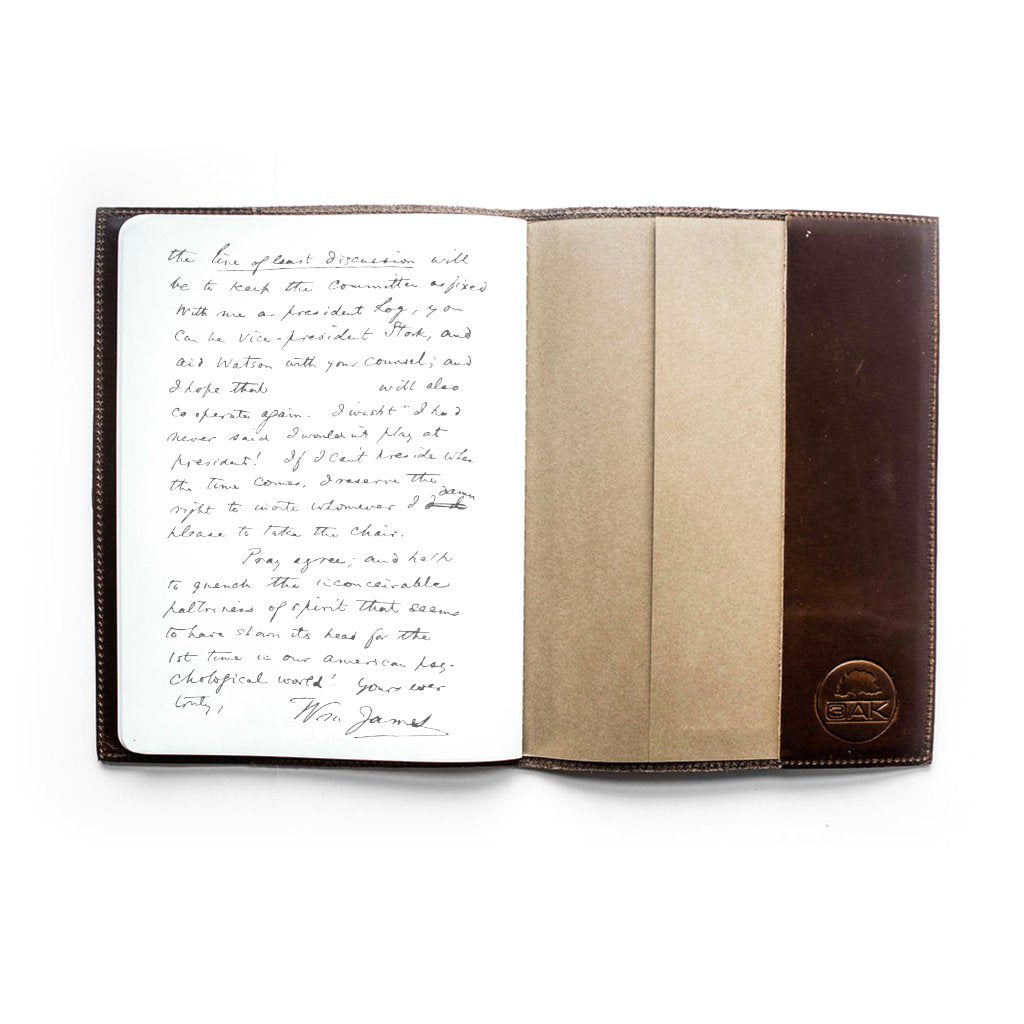 the line of least discussion will
be to keep the committee as fixed
With me as president Log, you
can be vice-president Stork, and
aid Watson with your counsel; and
I hope that will also
cooperate again. I wish "I had
never said I wouldn't play at
president! If I can't preside when
the time comes, I reserve the
right to invite whomever I damn
please to take the chair.
Pray agree; and help
to quench the inconceivable
paltriness of spirit that seems
to have shown its head for the
1st time in our american psy-
chological world! Yours ever
truly,
Wm James
3OAK